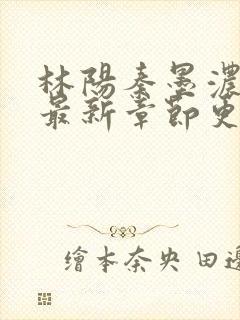 林陽秦墨濃
最新章節更
繪本奈央 田邊